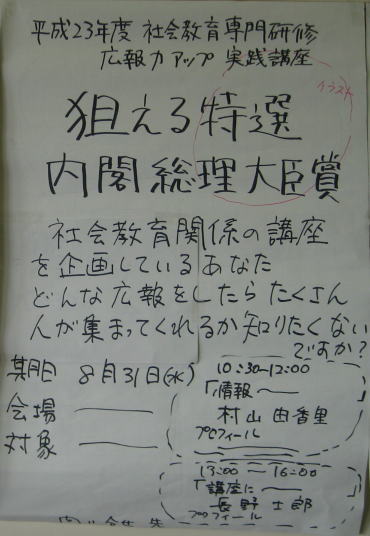 平成23年度 社会教育専門研修
広報力アップ 実践講座
イラスト
狙える特選
内閣総理大臣賞
社会教育関係の講座
を企画しているあなた
どんな広報をしたらたくさん
人が集まってくれるか知りたくない
ですか?
期日 8月31日(水)
会場
対象
10:30-12:00
「情報〜
村山由香里
プロフィール
13:00〜16:00
「講座に〜
長野士郎
プロフィール